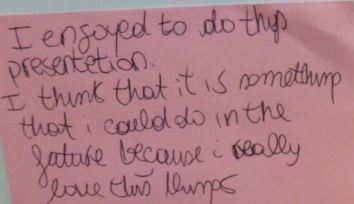 I enjoyed to do this
presentetion.
I think that it is something
that i could do in the
future because i really
love this things